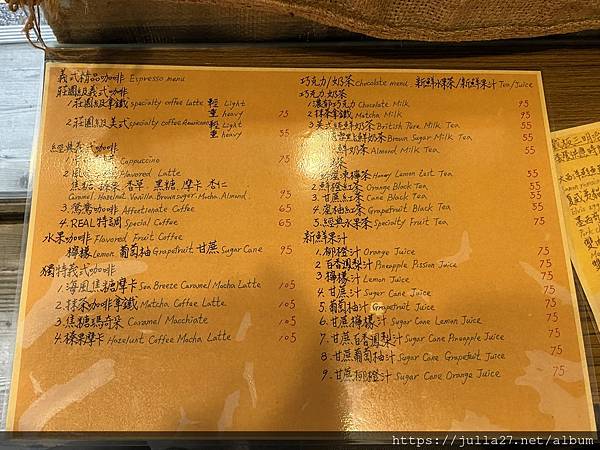 義式精品咖啡 Espresso menu
莊園級義式咖啡
1. 莊園級拿鐵 specialty coffee Latte 輕 Light
重 heavy 75
2. 莊園級美式 specialty coffee Americano 輕 Light
重 heavy 55
經典義式咖啡
Cappuccino 75
2. Flavored Latte
焦糖. 榛果. 香草. 黑糖. 摩卡. 杏仁
Caramel. Hazelnut. Vanilla. Brown sugar. Mocha. Almond 95
3. 鴛鴦咖啡 Affectionate Coffee 65
4. REAL特調 Special Coffee 65
水果咖啡 Flavored Fruit Coffee
檸檬 Lemon 葡萄柚 Grapefruit 甘蔗 Sugar Cane 95
獨特義式咖啡
1. 海風焦糖摩卡 Sea Breeze Caramel Mocha Latte 105
2. 抹茶咖啡拿鐵 Matcha Coffee Latte 105
3. 焦糖瑪奇朵 Caramel Macchiate 105
4. 榛果摩卡 Hazelust Coffee Mocha Latte 105
巧克力/奶茶 Chocolate menu. 新鮮水果茶/新鮮果汁 Tea/Juice
巧克力 奶茶
1. 濃郁巧克力 Chocolate Milk 75
2. 抹茶拿鐵 Matcha Milk 75
3. 英式純鮮奶茶 British Pure Milk Tea 55
鮮奶茶 Brown Sugar Milk Tea 55
鮮奶茶 Almond Milk Tea 55
茶
凍檸茶 Honey Lemon Iust Tea 55
2. 鮮橙紅茶 Orange Black Tea 55
3. 甘蔗紅茶 Cane Black Tea 55
4. 蜜柚紅茶 Grapefruit Black Tea 55
5. 經典水果茶 Specialty Fruit Tea 75
新鮮果汁
1. 柳橙汁 Orange Juice 75
2. 百香鳳梨汁 Pineapple Passion Juice 75
3. 檸檬汁 Lemon Juice 75
4. 甘蔗汁 Sugar Cane Juice 55
5. 葡萄柚汁 Grapefruit Juice 75
6. 甘蔗檸檬汁 Sugar Cane Lemon Juice 75
7. 甘蔗百香鳳梨汁 Sugar Cane Pineapple Juice 75
8. 甘蔗葡萄柚汁 Sugar Cane Grapefruit Juice 75
9. 甘蔗柳橙汁 Sugar Cane Orange Juice 75
https://julla27.net/album